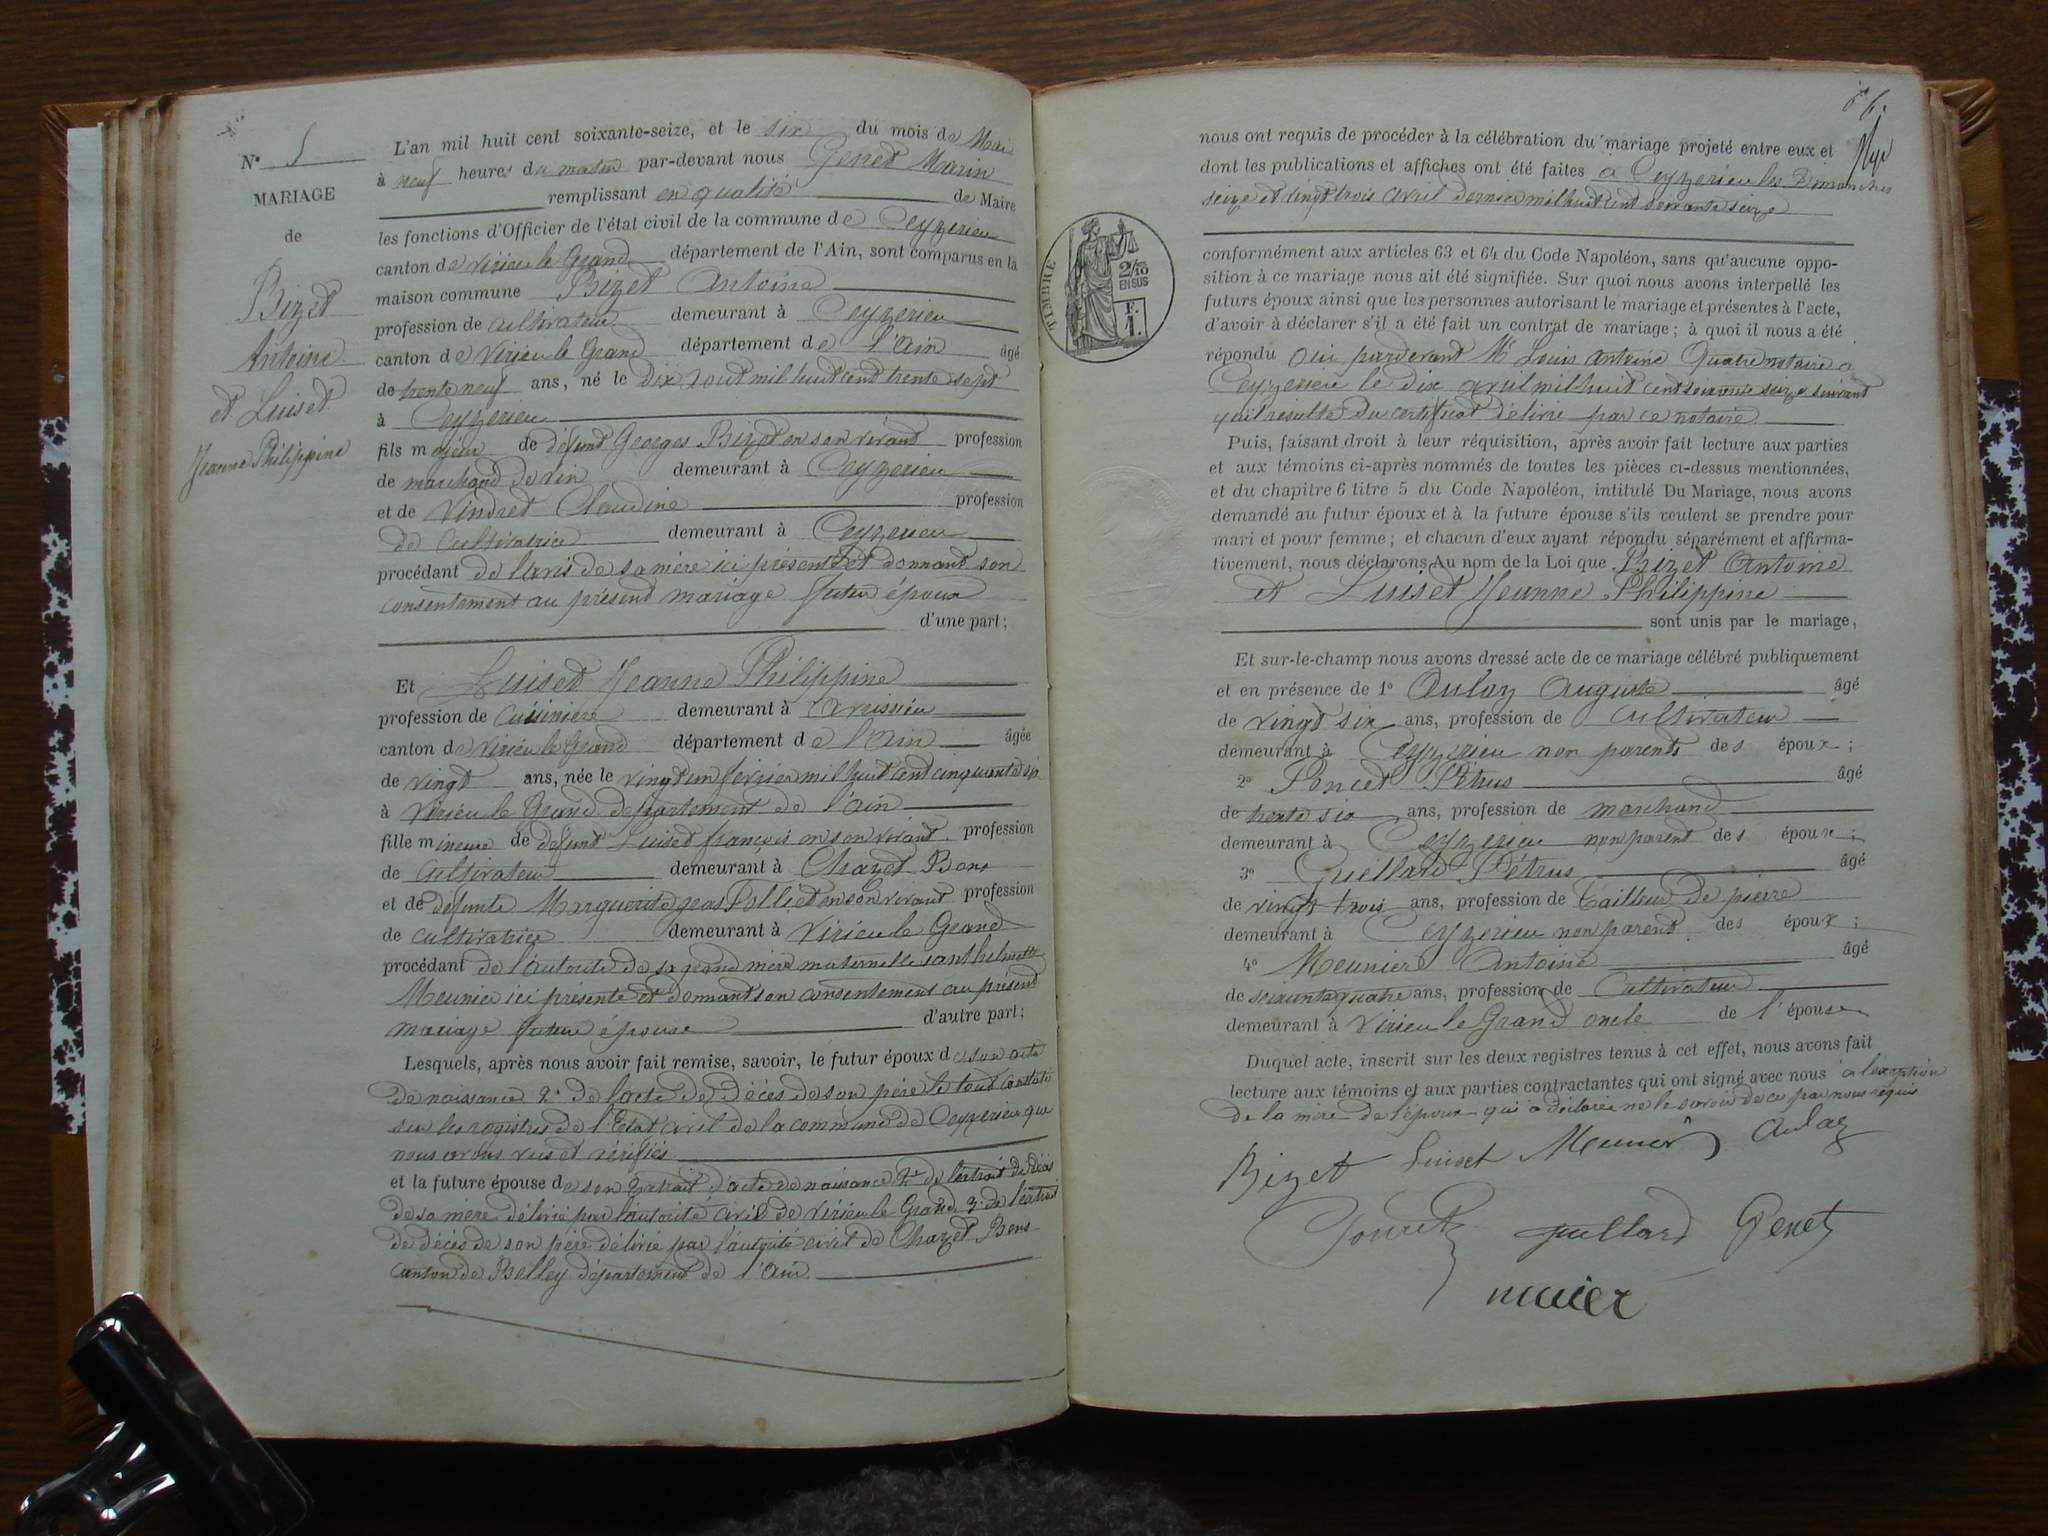 N° 5
MARIAGE
de
Bizet
Antoine
et Luiset
Jeanne Philippine
L'an mil huit cent soixante-seize, et le six du mois de Mai
à neuf heures du matin par-devant nous Genet Marin
remplissant en qualité de Maire
les fonctions d'Officier de l'état civil de la commune de Ceyzerieu
canton de Virieu le Grand département de l'Ain, sont comparus en la
maison commune Bizet Antoine
profession de cultivateur demeurant à Ceyzerieu
canton de Virieu le Grand département de l'Ain âgé
de trente neuf ans, né le dix aout mil huit cent trente sept
à Ceyzerieu
fils majeur de défunt Georges Bizet en son vivant profession
de marchand de vin demeurant à Ceyzerieu
et de Vindret Claudine profession
de cultivatrice demeurant à Ceyzerieu
procédant de l'avis de sa mère ici présente et donnant son
consentement au présent mariage futur époux
d'une part;
Et Luiset Jeanne Philippine
profession de cuisinière demeurant à
canton de Virieu le Grand département de l'Ain âgée
de vingt ans, née le vingt un février mil huit cent cinquante six
à Virieu le Grand département de l'ain
fille mineure de défunt Luiset françois en son vivant profession
de cultivateur demeurant à Chazet Bons
et de défunte Marguerite gros Pollet en son vivant profession
de cultivatrice demeurant à Virieu le Grand
procédant de l'autorité de sa grand mère maternelle
Meunier ici présente et donnant son consentement au présent
mariage future épouse d'autre part;
Lesquels, après nous avoir fait remise, savoir, le futur époux de son acte
de naissance 2° de l'acte de décès de son père le tout constaté
sur les registres de l'Etat civil de la commune de Ceyzerieu que
nous avons vus et vérifiés
et la future épouse de son extrait d'acte de naissance 2° de l'extrait de décès
de sa mère délivré par l'autorité civil de Virieu le Grand 3° de l'extrait
de décès de son père délivré par l'autorité civil de Chazet Bons
canton de Belley département de l'Ain
6.
nous ont requis de procéder à la célébration du mariage projeté entre eux et
dont les publications et affiches ont été faites à Ceyzerieu les Dimanches
seize et vingt trois avril dernier mil huit cent soixante seize
TIMBRE
2/10
EN SUS
F.
1.
conformément aux articles 63 et 64 du Code Napoléon, sans qu'aucune oppo-
sition à ce mariage nous ait été signifiée. Sur quoi nous avons interpellé les
futurs époux ainsi que les personnes autorisant le mariage et présentes à l'acte,
d'avoir à déclarer s'il a été fait un contrat de mariage; à quoi il nous a été
répondu oui pardevant Me Louis Antoine Quatre notaire a
Ceyzerieu le dix avril mil huit cent soixante seize suivant
qu'il resulte du certificat délivré par ce notaire
Puis, faisant droit à leur réquisition, après avoir fait lecture aux parties
et aux témoins ci-après nommés de toutes les pièces ci-dessus mentionnées,
et du chapitre 6 titre 5 du Code Napoléon, intitulé Du Mariage, nous avons
demandé au futur époux et à la future épouse s'ils veulent se prendre pour
mari et pour femme; et chacun d'eux ayant répondu séparément et affirma-
tivement, nous déclarons Au nom de la Loi que Bizet Antoine
et Luiset Jeanne Philippine
sont unis par le mariage,
Et sur-le-champ nous avons dressé acte de ce mariage célébré publiquement
et en présence de 1° Aulaz Auguste âgé
de vingt six ans, profession de cultivateur
demeurant à Ceyzerieu non parents des époux;
2° Poncet Pétrus âgé
de trente six ans, profession de marchand
demeurant à Ceyzerieu non parent des époux;
3° Guillard Pétrus âgé
de vingt trois ans, profession de Tailleur de pierre
demeurant à Ceyzerieu non parent des époux;
4° Meunier Antoine âgé
de soixante quatre ans, profession de Cultivateur
demeurant à Virieu le Grand oncle de l'épouse
Duquel acte, inscrit sur les deux registres tenus à cet effet, nous avons fait
lecture aux témoins et aux parties contractantes qui ont signé avec nous à l'exception
de la mère de l'époux qui a déclaré ne le savoir de ce par nous requis
Bizet Luiset Meunier Aulaz
guillard Genet